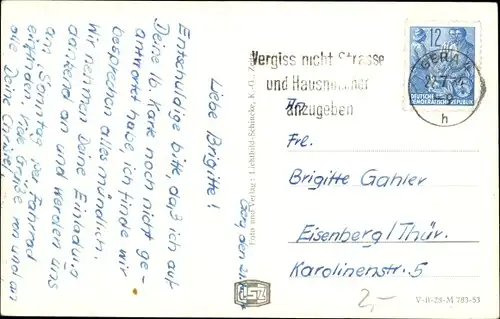 Liebe Brigitte!
Entschuldige bitte, daß ich auf
Deine lb. Karte noch nicht ge-
antwortet habe, ich finde wir
besprechen alles mündlich.
Wir nehmen Deine Einladung
dankend an und werden uns
am Sonntag per Fahrrad
einfinden. Viele Grüße von und an
alle Deine
Foto und Verlag: Lichtbild-Schincke, K.-G.
Vergiss nicht Strasse
und Hausnummer
anzugeben
GERA
h
12
DEUTSCHE
DEMOKRATISCHE REPUBLIK
An
Frl.
Brigitte Gahler
Eisenberg/Thür.
Karolinenstr. 5
2,-
V-8-28-M 783-53